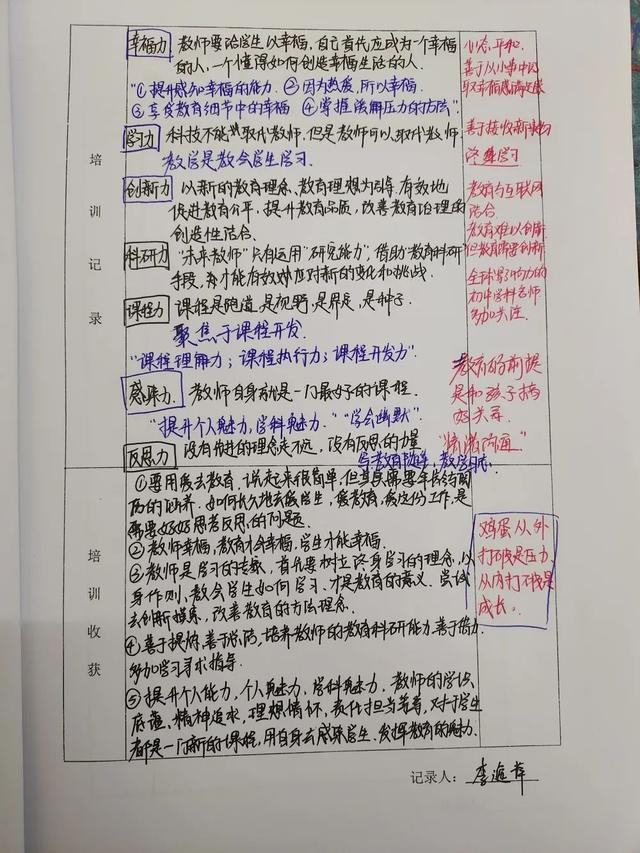 培训记录
幸福力 教师要给学生以幸福,自己首先应成为一个幸福
的人,一个懂得如何创造幸福生活的人.
"①提升感知幸福的能力. ②因为热爱,所以幸福.
③享受教育细节中的幸福 ④掌握缓解压力的方法".
学习力 科技不能"取代教师,但是教师可以取代教师.
教学是教会学生学习.
创新力 以新的教育理念、教育理想为引导.有效地
促进教育公平.提升教育品质,改善教育治理的
创造性结合.
科研力 "未来教师"只有运用"研究能力",借助"教育科研
手段,才能有效应对新的变化和挑战.
课程力 课程是跑道,是视野,是界辰,是种子.
聚焦于课程开发.
"课程理解力;课程执行力;课程开发力".
感染力. 教师自身就是一门最好的课程.
"提升个人魅力,学科魅力." "学会幽默".
反思力 没有先进的理念走不远,没有反思的力量
写教育随笔,教学
心态平和.
善于从小事中汲
取幸福感满足感
善于接收新事物
终身学习
教育与互联网
结合
教育难以创新
但教育需要创新
全球影响力的
初中学科名师
多加关注.
教育的前提
是和孩子搞
好关系.
沟通"
培训收获
①要用爱去教育,说起来很简单,但其实需要
的涵养.如何长久地去爱学生,爱教育,爱这份工作,是
需要好好思考反思的问题.
②教师幸福,教育才会幸福,学生才能幸福.
③教师是学习的专家.首先要树立终身学习的理念,以
身作则,教会学生如何学习.才是教育的意义.尝试
去创新探索,改善教育的方法理念.
④善于提炼,善于总结,培养教师的教育科研能力.善于借力.
多加学习寻求指导.
⑤提升个人能力,个人魅力,学科魅力.教师的学识、
底蕴、精神追求,理想情怀,责任担当等等,对于学生
都是一门新的课程,用自身去感染学生.发挥教育的魅力.
鸡蛋从外
打破是压力.
从内打破是
成长.
记录人:李